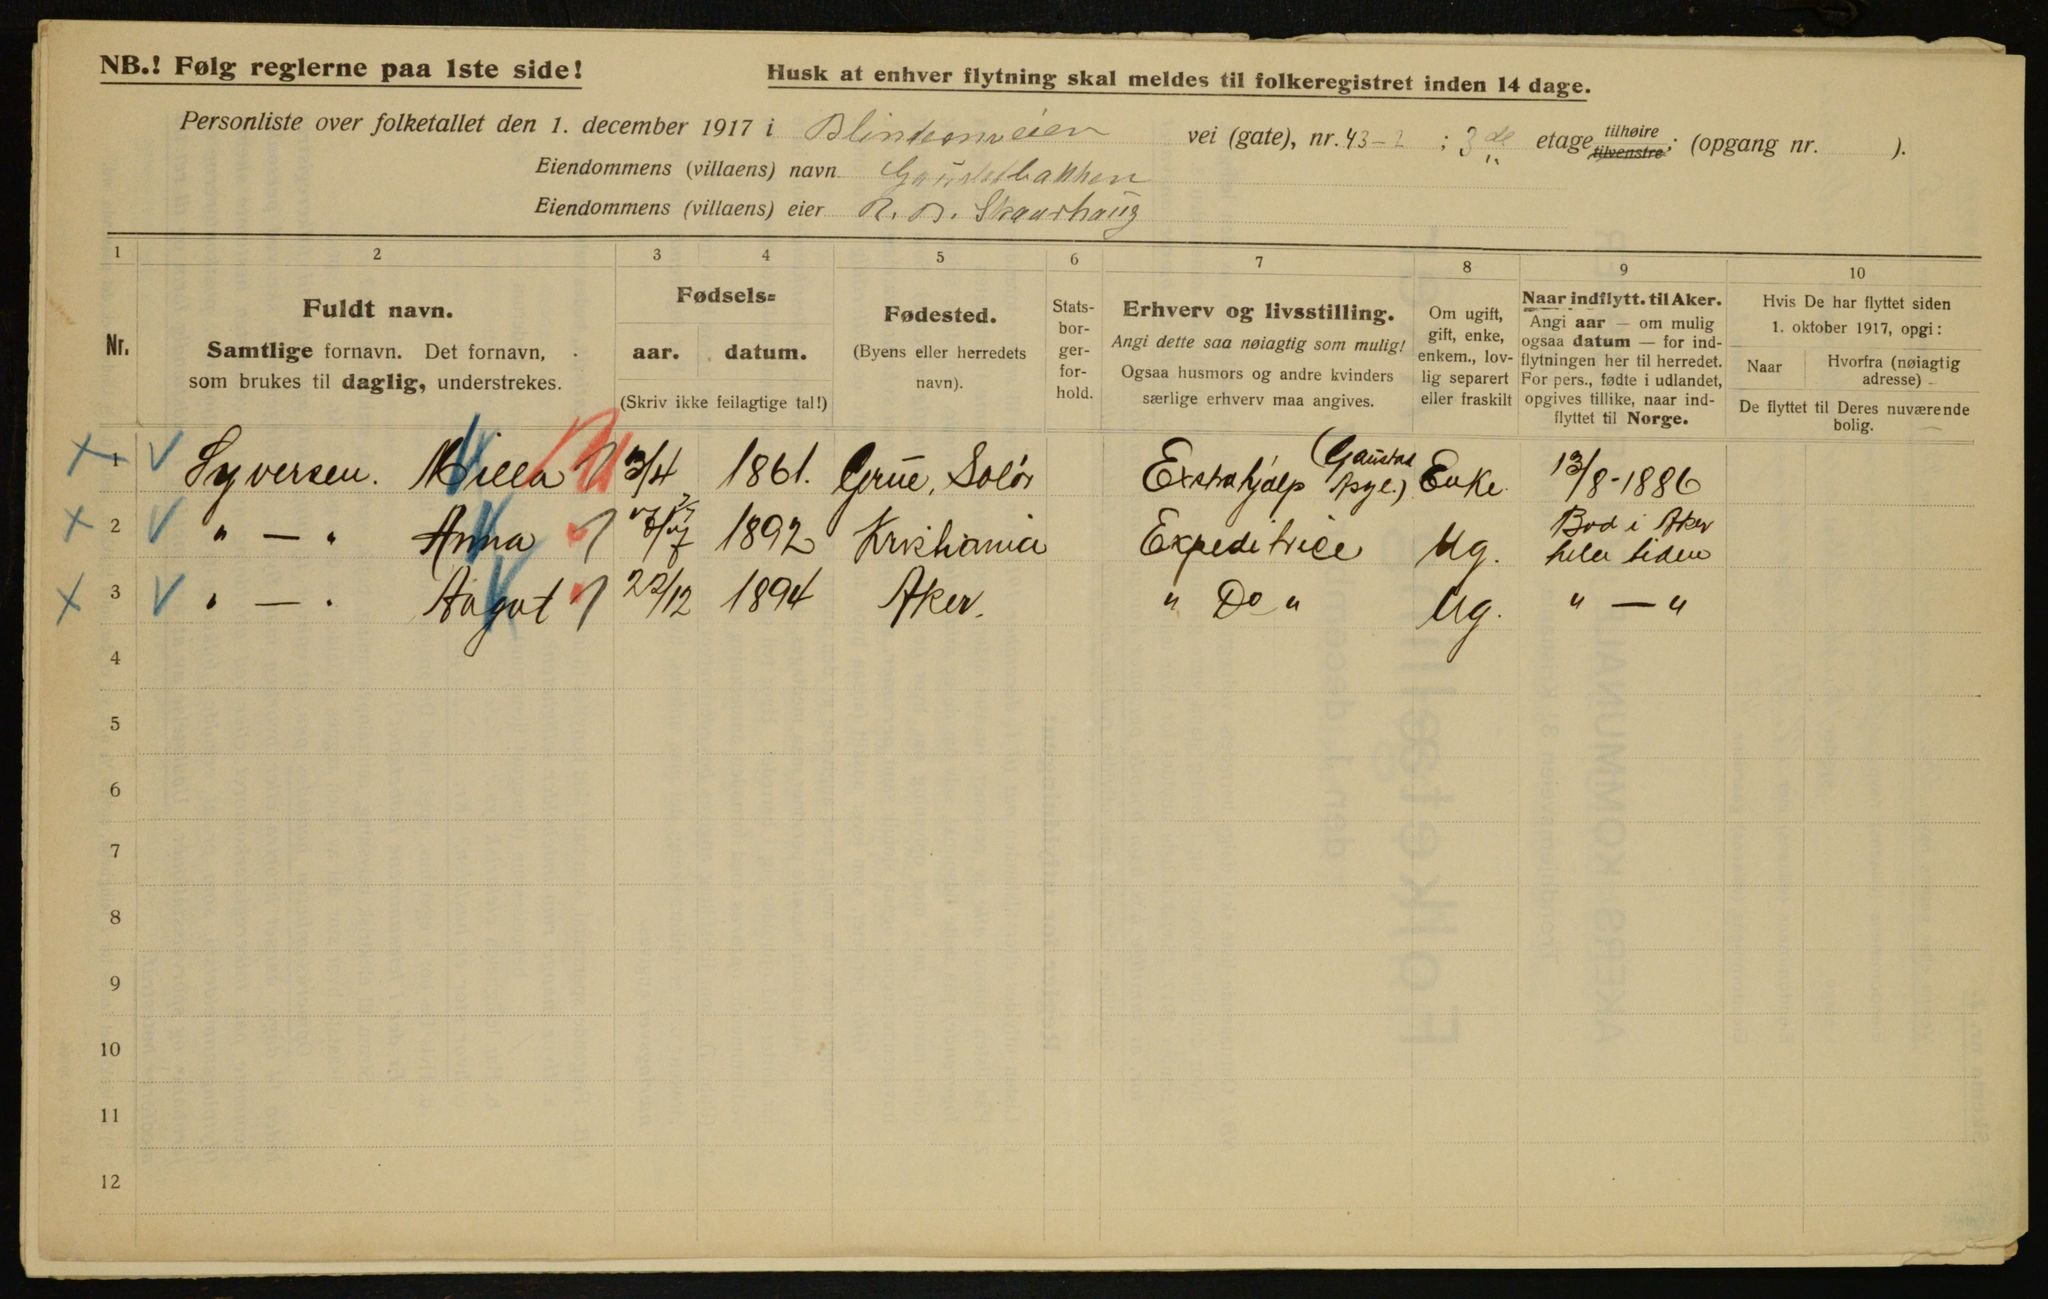 NB.! Følg reglerne paa 1ste side!
Husk at enhver flytning skal meldes til folkeregistret inden 14 dage.
Personliste over folketallet den 1. december 1917 i Blindernveien vei (gate), nr. 43-2 ; 3 de etage tilhøire tilvenstre; (opgang nr. ).
Eiendommens (villaens) navn Gaustadbakken
Eiendommens (villaens) eier R. D. Skaarhaug
1 2 3 4 5 6 7 8 9 10
Nr.
Fuldt navn.
Samtlige fornavn. Det fornavn,
som brukes til daglig, understrekes.
Fødsels=
aar. datum.
(Skriv ikke feilagtige tal!)
Fødested.
(Byens eller herredets
navn).
Stats-
bor-
ger-
for-
hold.
Erhverv og livsstilling.
Angi dette saa nøiagtig som mulig!
Ogsaa husmors og andre kvinders
særlige erhverv maa angives.
Om ugift,
gift, enke,
enkem., lov-
lig separert
eller fraskilt
Naar indflytt. til Aker.
Angi aar — om mulig
ogsaa datum — for ind-
flytningen her til herredet.
For pers., fødte i udlandet,
opgives tillike, naar ind-
flyttet til Norge.
Hvis De har flyttet siden
1. oktober 1917, opgi:
Naar
Hvorfra (nøiagtig
adresse)
De flyttet til Deres nuværende
bolig.
1 Syversen. Milla 3/4 1861. Grue, Solør Extrahjælp (Gaustad Asyl.) Enke. 13/8-1886
2 " — " Anna 1892 Kristiania Expeditrice Ug. Bod i Aker hele tiden
3 " — " Aagot 22/12 1894 Aker. " Do " Ug. " — "
4
5
6
7
8
9
10
11
12